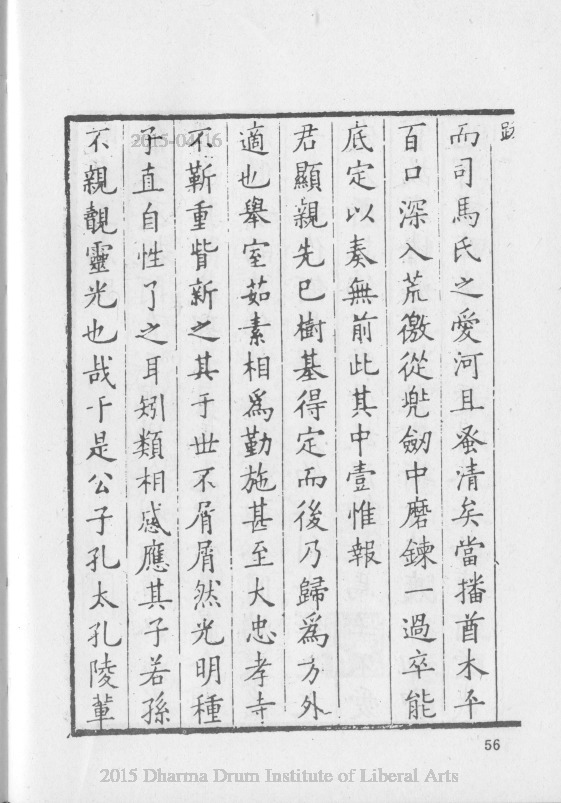 跋
而司馬氏之愛河且蚤清矣當播酋木平
百口深入荒徼從兠劔中磨鍊一過卒能
底定以奏無前此其中壹惟報
君顯親先已樹基得定而後乃歸爲方外
適也舉室茹素相爲勤施甚至大忠孝寺
不靳重貲新之其于世不屑屑然光明種
子直自性了之耳矧類相感應其子若孫
不親覩靈光也哉于是公子孔太孔陵輩
2015-04-16
56
2015 Dharma Drum Institute of Liberal Arts